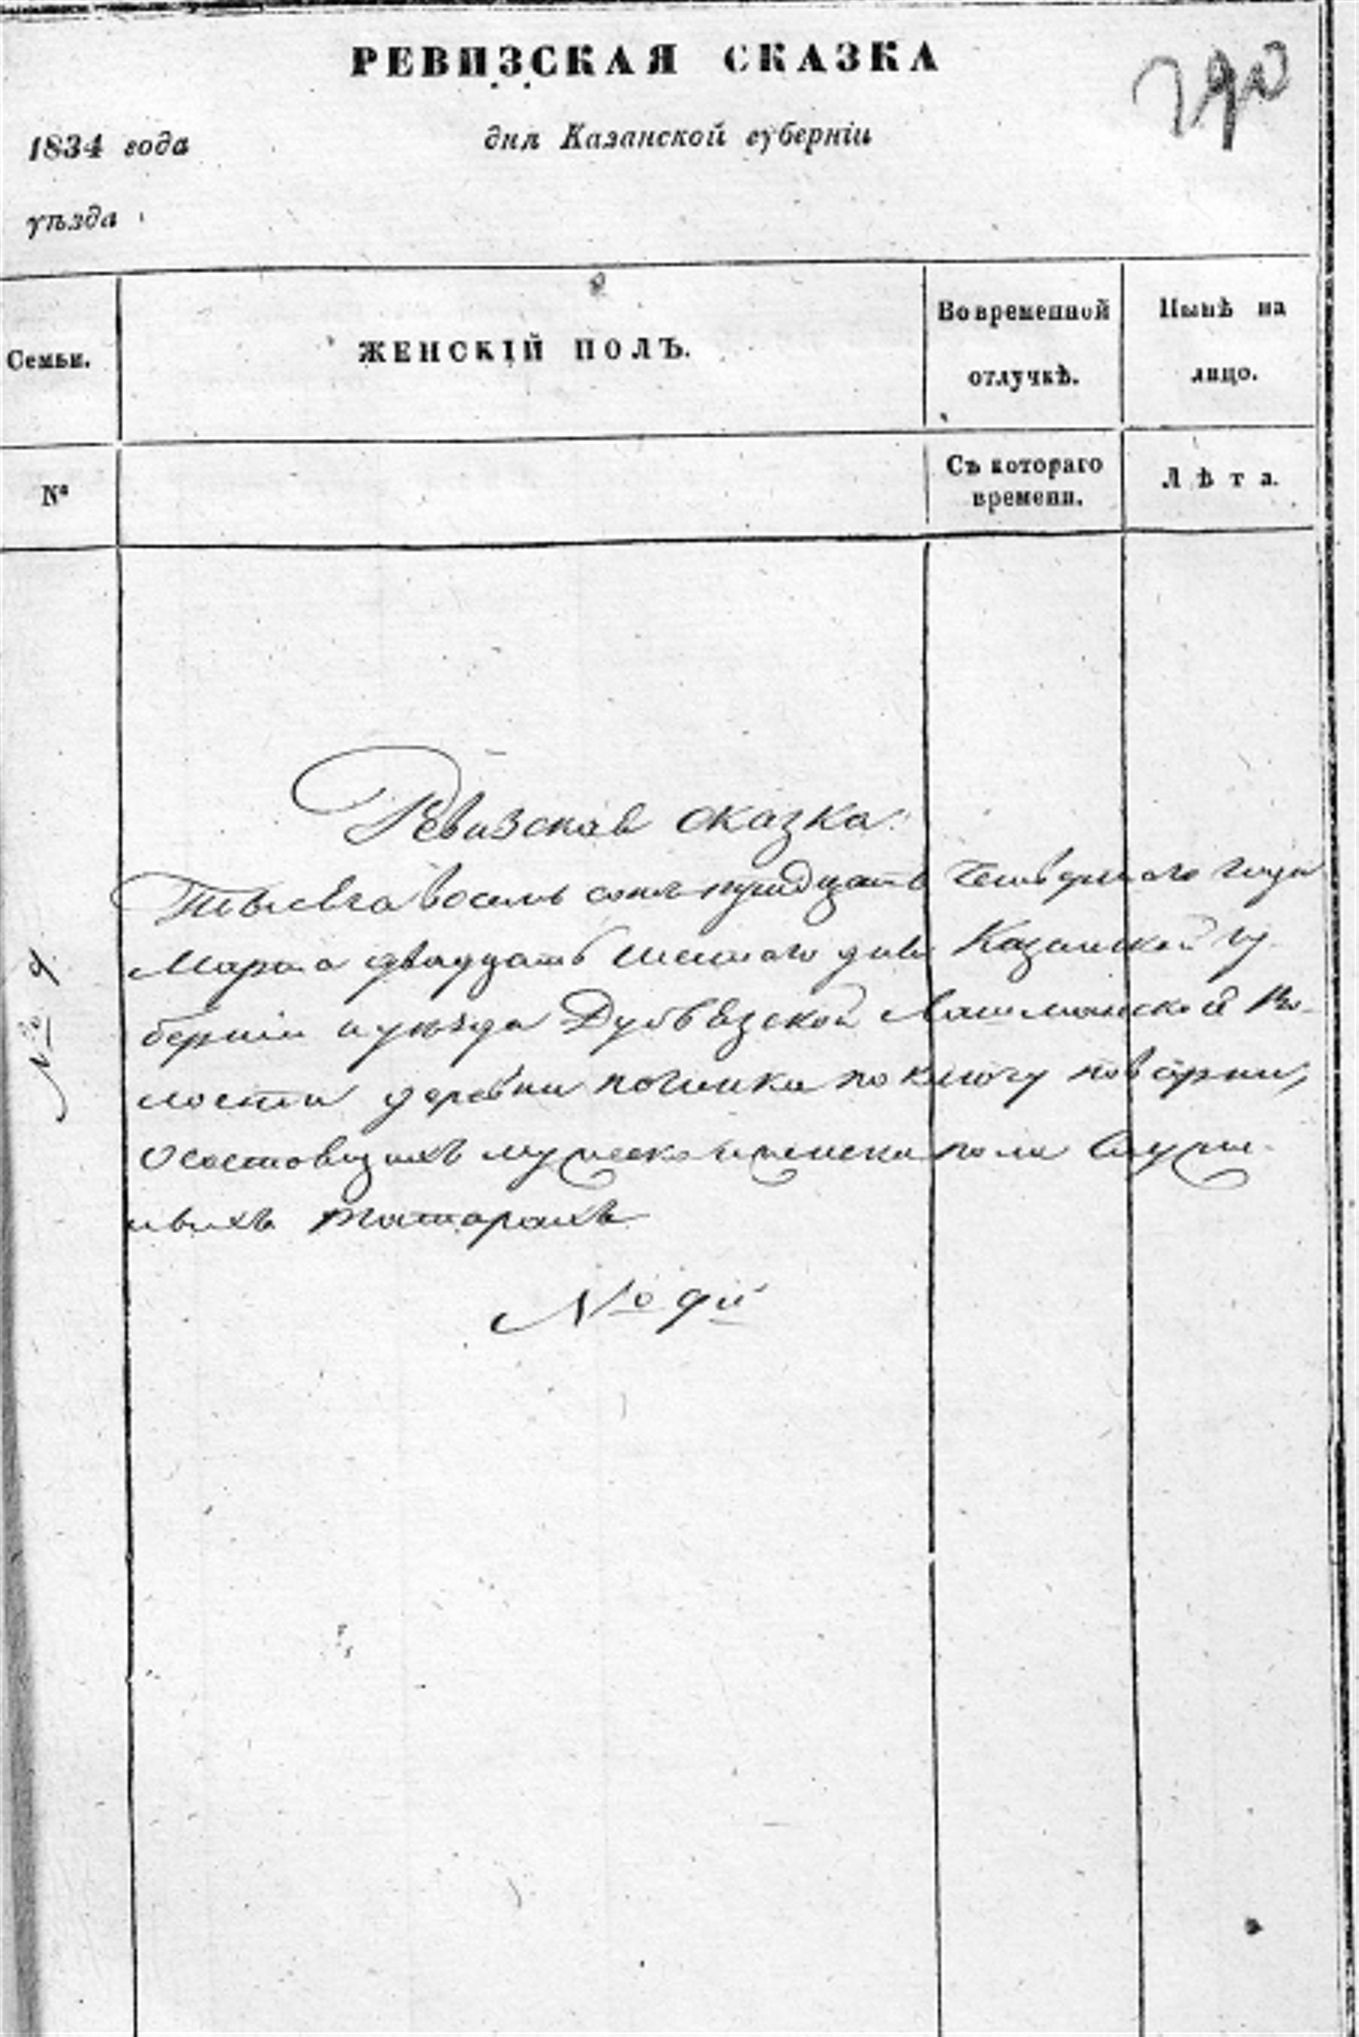 РЕВИЗСКАЯ СКАЗКА
290
1834 года дня Казанской губерніи
уѣзда
Семьи. ЖЕНСКІЙ ПОЛЪ. Во временной отлучкѣ. Нынѣ на лицо.
№ Съ котораго времени. Лѣта.
Ревизская сказка
Тысяча восемь сотъ тридцать четвертаго года
Марта двадцать шестого дня Казанской гу
берніи и уѣзда Дубъязской Лашманской во-
лости деревни починка по ключу
О состоящихъ мужеска и женска пола служи-
выхъ татарахъ
№ 9й
№ 9.